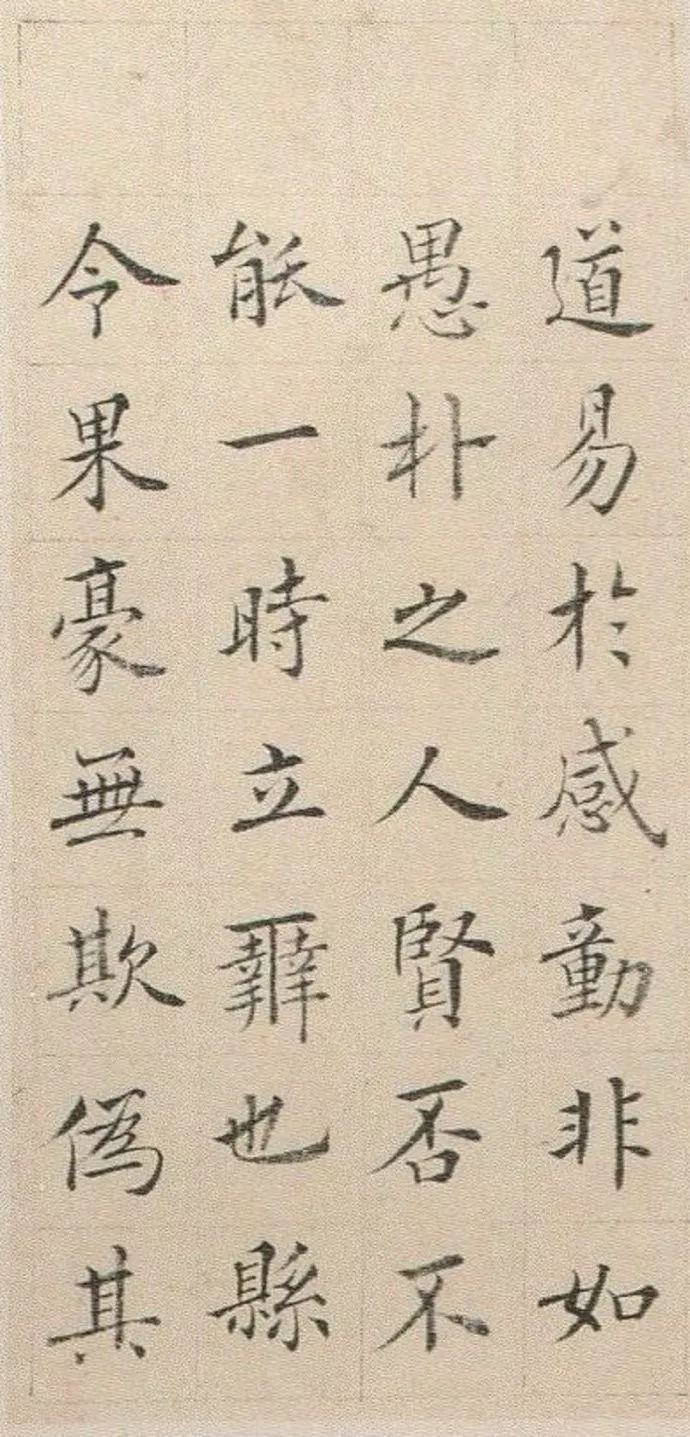 道易於感動非如
愚朴之人賢否不
能一時立辨也縣
令果豪無欺偽其